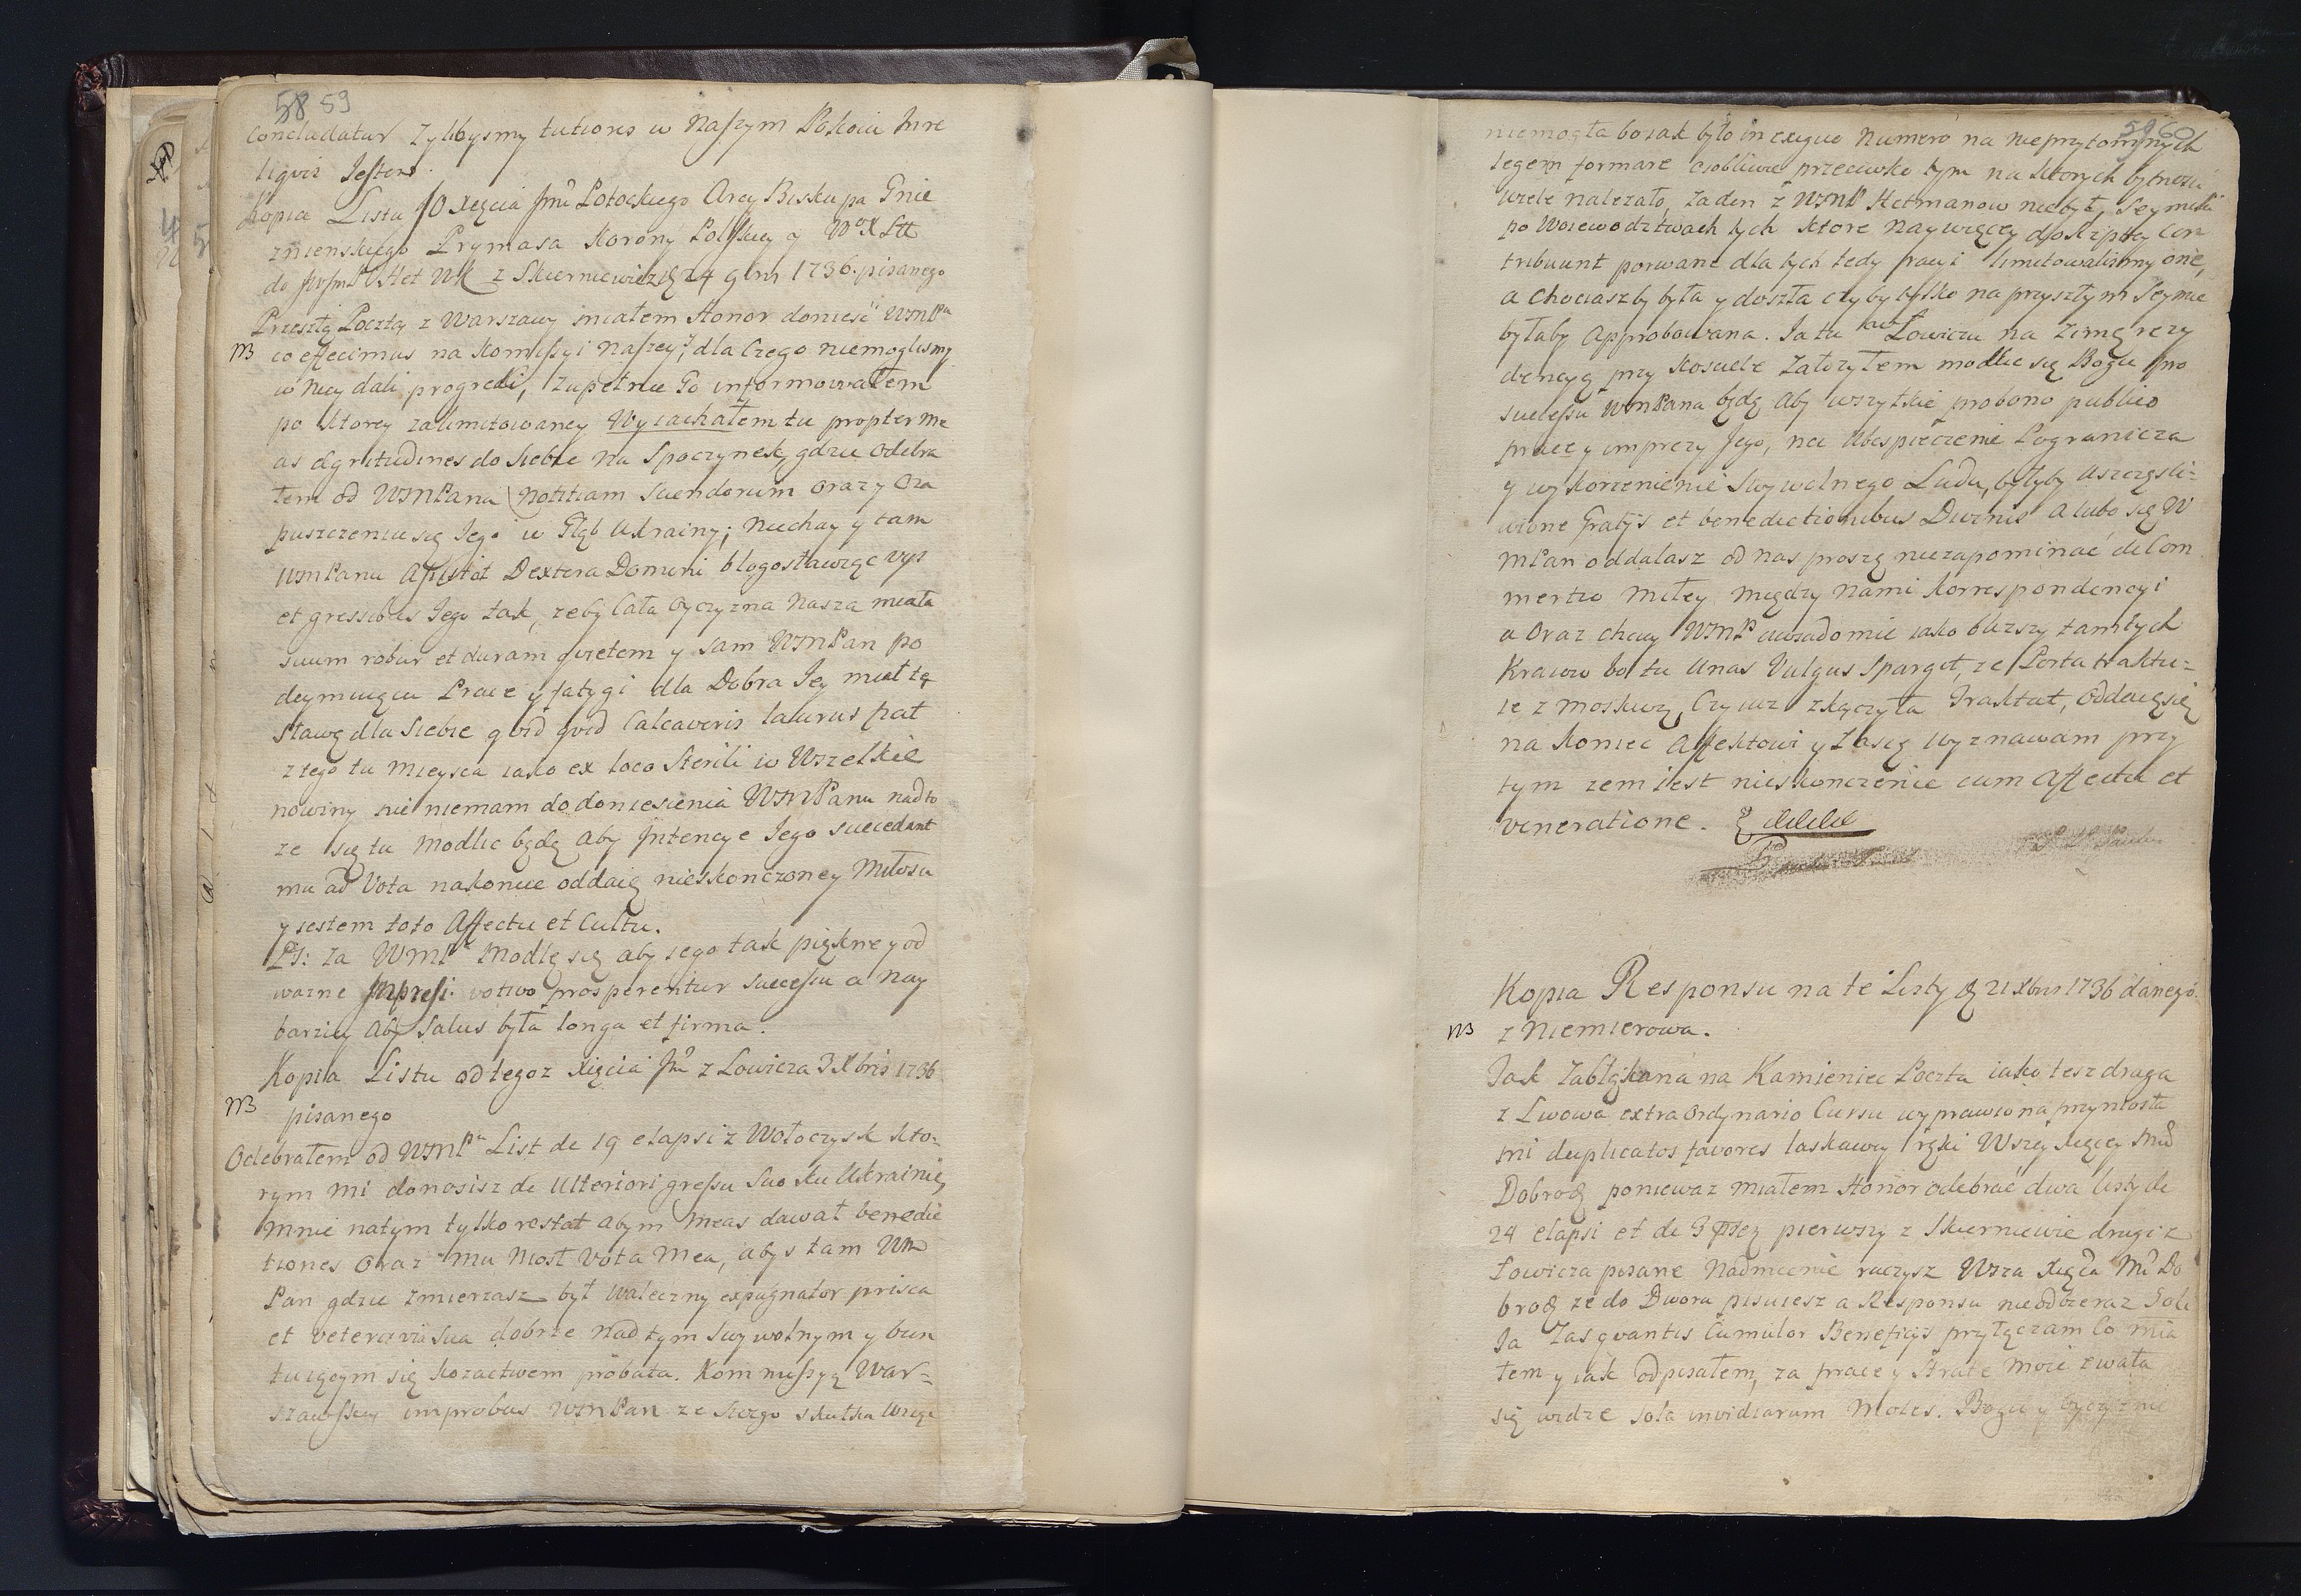 58 59
Concludatur Zylibysmy tutiores w Naszym Pokoiu Inre
liqvis Jestem.
Kopia Listu JO Xięcia Jmci Potockiego Arcy Biskupa Gnie
znienskiego Prymasa Korony Polskiey y WoXLitt
do Het WK z Skierniewic 24 9bris 1736. pisanego
Przeszłą Pocztą z Warszawy miałem Honor donieść WMPu
NB co effecimus na Komissyi Naszey, dla Czego niemoglismy
w Niey dali progredi, Zupełnie Go informowałem
po ktorey zalimitowaney Wyiachałem tu propter Me
as Egritudines do Siebie Na Spoczynek, gdzie Odebra
łem od WMPana Notitiam Suendorum oraz y Oza
puszczeniu się Jego w Głąb Ukrainy; Niechay y tam
WMPanu Assistat Dextera Domini błogosławiąc vys
et gressibus Jego tak, zeby Cała Oyczyzna Nasza miała
suum robur et duram qvietem y sam WMPan po
deymuiący Prace y fatygi dla Dobra Jey miał tę
Sławę dla Siebie qvid qvid Calcaveris laurus fiat
z tego tu Mieysca iako ex loco Sterili w Wszelkie
nowiny nic niemam do doniesienia WMPanu nad to
ze się tu Modlic będę Aby Intencye Jego succedant
mu ad Vota nakoniec oddaię nieskonczoney Miłosci
y iestem toto Affectu et Cultu.
PS: Za WMPa Modlę się aby iego tak piękne y od
wazne Impresi votivo prosperentur successu a Nay
barziey Aby Salus była longa et firma.
Kopia Listu od tegoz Xięcia Jmci z Lowicza 3 Xbris 1736
NB pisanego
Odebrałem od WMPu List de 19 elapsi z Wołoczysk kto-
rym mi donosisz de Ulteriori gressu Suo ku Ukrainie,
mnie natym tylko restat abym Meas dawał benedic
tiones Oraz mu Niosł Vota Mea, abys tam WM
Pan gdzie zmierzasz był Waleczny expugnator prisca
et veterana Sua dobrze Nad tym Swywolnym y bun
tuiącym się Kozactwem probata. Kommissyą War-
szawskiey improbus WMPan ze Swego skutku Wziąc
59 60
niemogła bo iak było in exiguo Numero na Nieprzytomnych
legem formare osobliwie przeciwko tym na ktorych bytnosci
wiele Nalezało, zaden z WMP Hetmanow niebył, Seymiki
po Woiewodztwach tych ktore Naywięcey do Skrzyney Con
tribuunt porwane dla tych tedy racyi limitowalismy onę,
a chociaszby była y doszła czyby tylko na przyszłym Seymie
byłaby Approbowana. Ja tu w Łowiczu na Zimę rezy
dencyą przy Kosciele Załozyłem modlic się Bogu pro
successu WMPana będę Aby wszytkie pro bono publico
prace y imprezy Jego, na Ubespieczenie Pogranicza
y wykorzenienie Swywolnego Ludu, byłyby uszczęsli-
wione Gratijs et benedictionibus Divinis a lubo się W
MPan oddalasz od Nas proszę niezapominać de Com
mertio Miłey między Nami Korrespondencyi
a Oraz chciey WMP uwiadomic iako blizszy tamtych
Kraiow bo tu Unas Vulgus Spargit, ze Porta traktu-
ie z Moskwą, Czy iuz zkączyła Traktat, Oddaię się
na Koniec Affektowi y Łasię Wyznawam przy
tym zem iest nieskonczenie cum Affectu et
veneratione.
Kopia Responsu na te Listy 21 Xbris 1736 danego
NB z Niemierowa.
Jak Zabłąkana na Kamieniec Poczta iako tesz druga
z Lwowa extra Ordynario Cursu wyprawiona przyniosła
mi duplicatos favores laskawey ręki Wszey Xiącey Mci
Dobrod poniewaz miałem Honor odebrać dwa listy de
24 elapsi et de 3 pierwszy z Skierniewic drugi z
Łowicza pisane Nadmienic raczysz Wsza Xięca Mc Do
brod ze do Dwora pisuiesz a Responsu nieodbieraz
Ja Zas qvantis Cumulor Beneficijs przyłączam Co mia
łem y iak odpisałem, za prace y Strate Moie zwała
się widze sola invidiarum Moles. Bogu y Oyczyznie